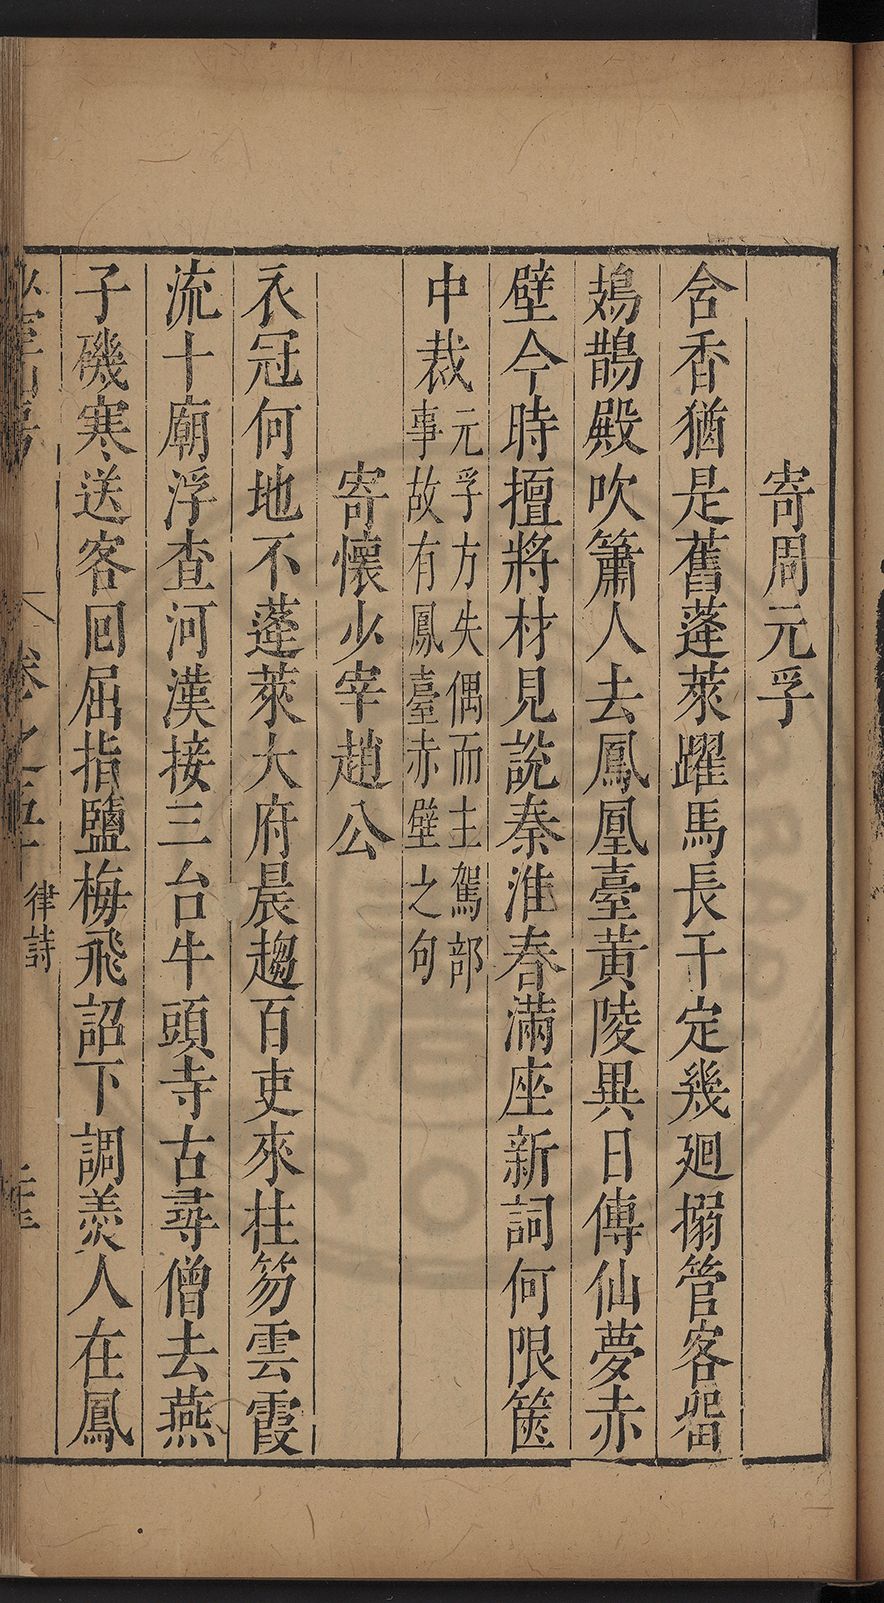 寄周元孚
含香猶是舊蓬萊躍馬長干定幾廻搦管客留
鳷鵲殿吹簫人去鳳凰臺黃陵異日傳仙夢赤
壁今時擅將材見說秦淮春滿座新詞何限篋
中裁
元孚方失偶而主駕部
事故有鳳臺赤壁之句
寄懷少宰趙公
衣冠何地不蓬萊大府晨趨百吏來拄笏雲霞
流十廟浮查河漢接三台牛頭寺古尋僧去燕
子磯寒送客回屈指鹽梅飛詔下調羹人在鳳
卷之五十
律詩